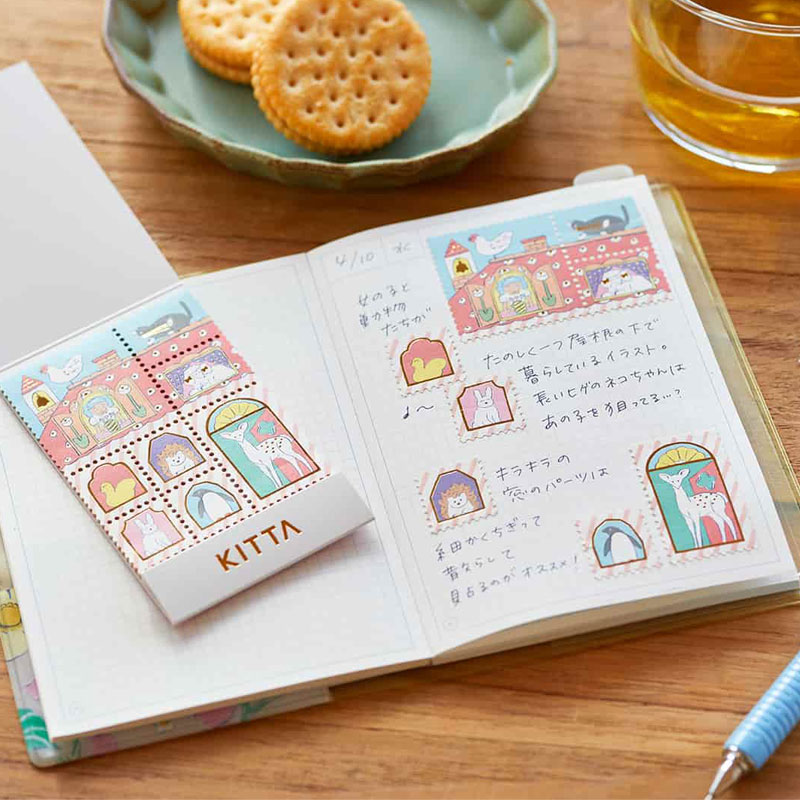 4/10 水
女の子と
動物
たちが
たのしく一つ屋根の下で
暮らしているイラスト。
長いヒゲのネコちゃんは
あの子を狙ってる…?
♪〜
キラキラの
窓のパーツは
細かくちぎって
着ならして
見占るのがオススメ!
KITTA